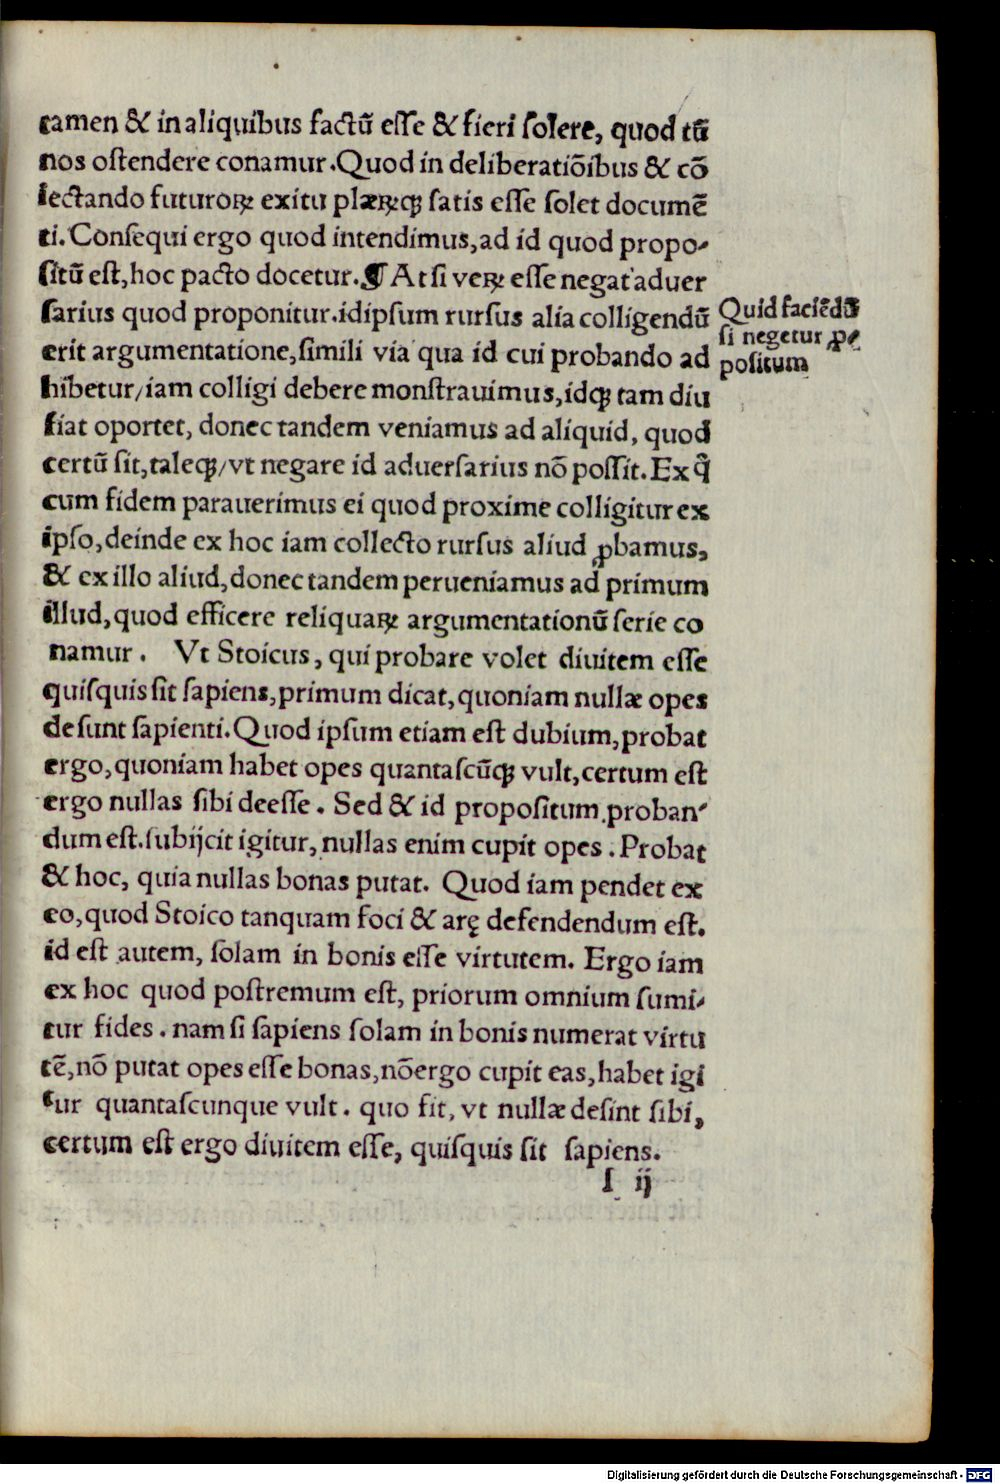 tamen & in aliquibus factū esse & fieri solere, quod tū
nos ostendere conamur. Quod in deliberatiōibus & cō
iectando futuroꝝ exitu plæꝝqꝫ satis esse solet documē
ti. Consequi ergo quod intendimus, ad id quod propo-
sitū est, hoc pacto docetur. ¶ At si veꝝ esse negat aduer
sarius quod proponitur. idipsum rursus alia colligendū
erit argumentatione, simili via qua id cui probando ad
hibetur/iam colligi debere monstrauimus, idqꝫ tam diu
fiat oportet, donec tandem veniamus ad aliquid, quod
certū sit, taleqꝫ/vt negare id aduersarius nō possit. Ex q̄
cum fidem parauerimus ei quod proxime colligitur ex
ipso, deinde ex hoc iam collecto rursus aliud ꝓbamus,
& ex illo aliud, donec tandem perueniamus ad primum
illud, quod efficere reliquaꝝ argumentationū serie co
namur. Vt Stoicus, qui probare volet diuitem esse
quisquis sit sapiens, primum dicat, quoniam nullæ opes
desunt sapienti. Quod ipsum etiam est dubium, probat
ergo, quoniam habet opes quantascūqꝫ vult, certum est
ergo nullas sibi deesse. Sed & id propositum proban-
dum est. subijcit igitur, nullas enim cupit opes. Probat
& hoc, quia nullas bonas putat. Quod iam pendet ex
eo, quod Stoico tanquam foci & arę defendendum est.
id est autem, solam in bonis esse virtutem. Ergo iam
ex hoc quod postremum est, priorum omnium sumi-
tur fides. nam si sapiens solam in bonis numerat virtu
tē, nō putat opes esse bonas, nōergo cupit eas, habet igi
tur quantascunque vult. quo fit, vt nullæ desint sibi,
certum est ergo diuitem esse, quisquis sit sapiens.
I ij
Quid faciēdū
si negetur ꝓ-
positum
Digitalisierung gefördert durch die Deutsche Forschungsgemeinschaft - DFG